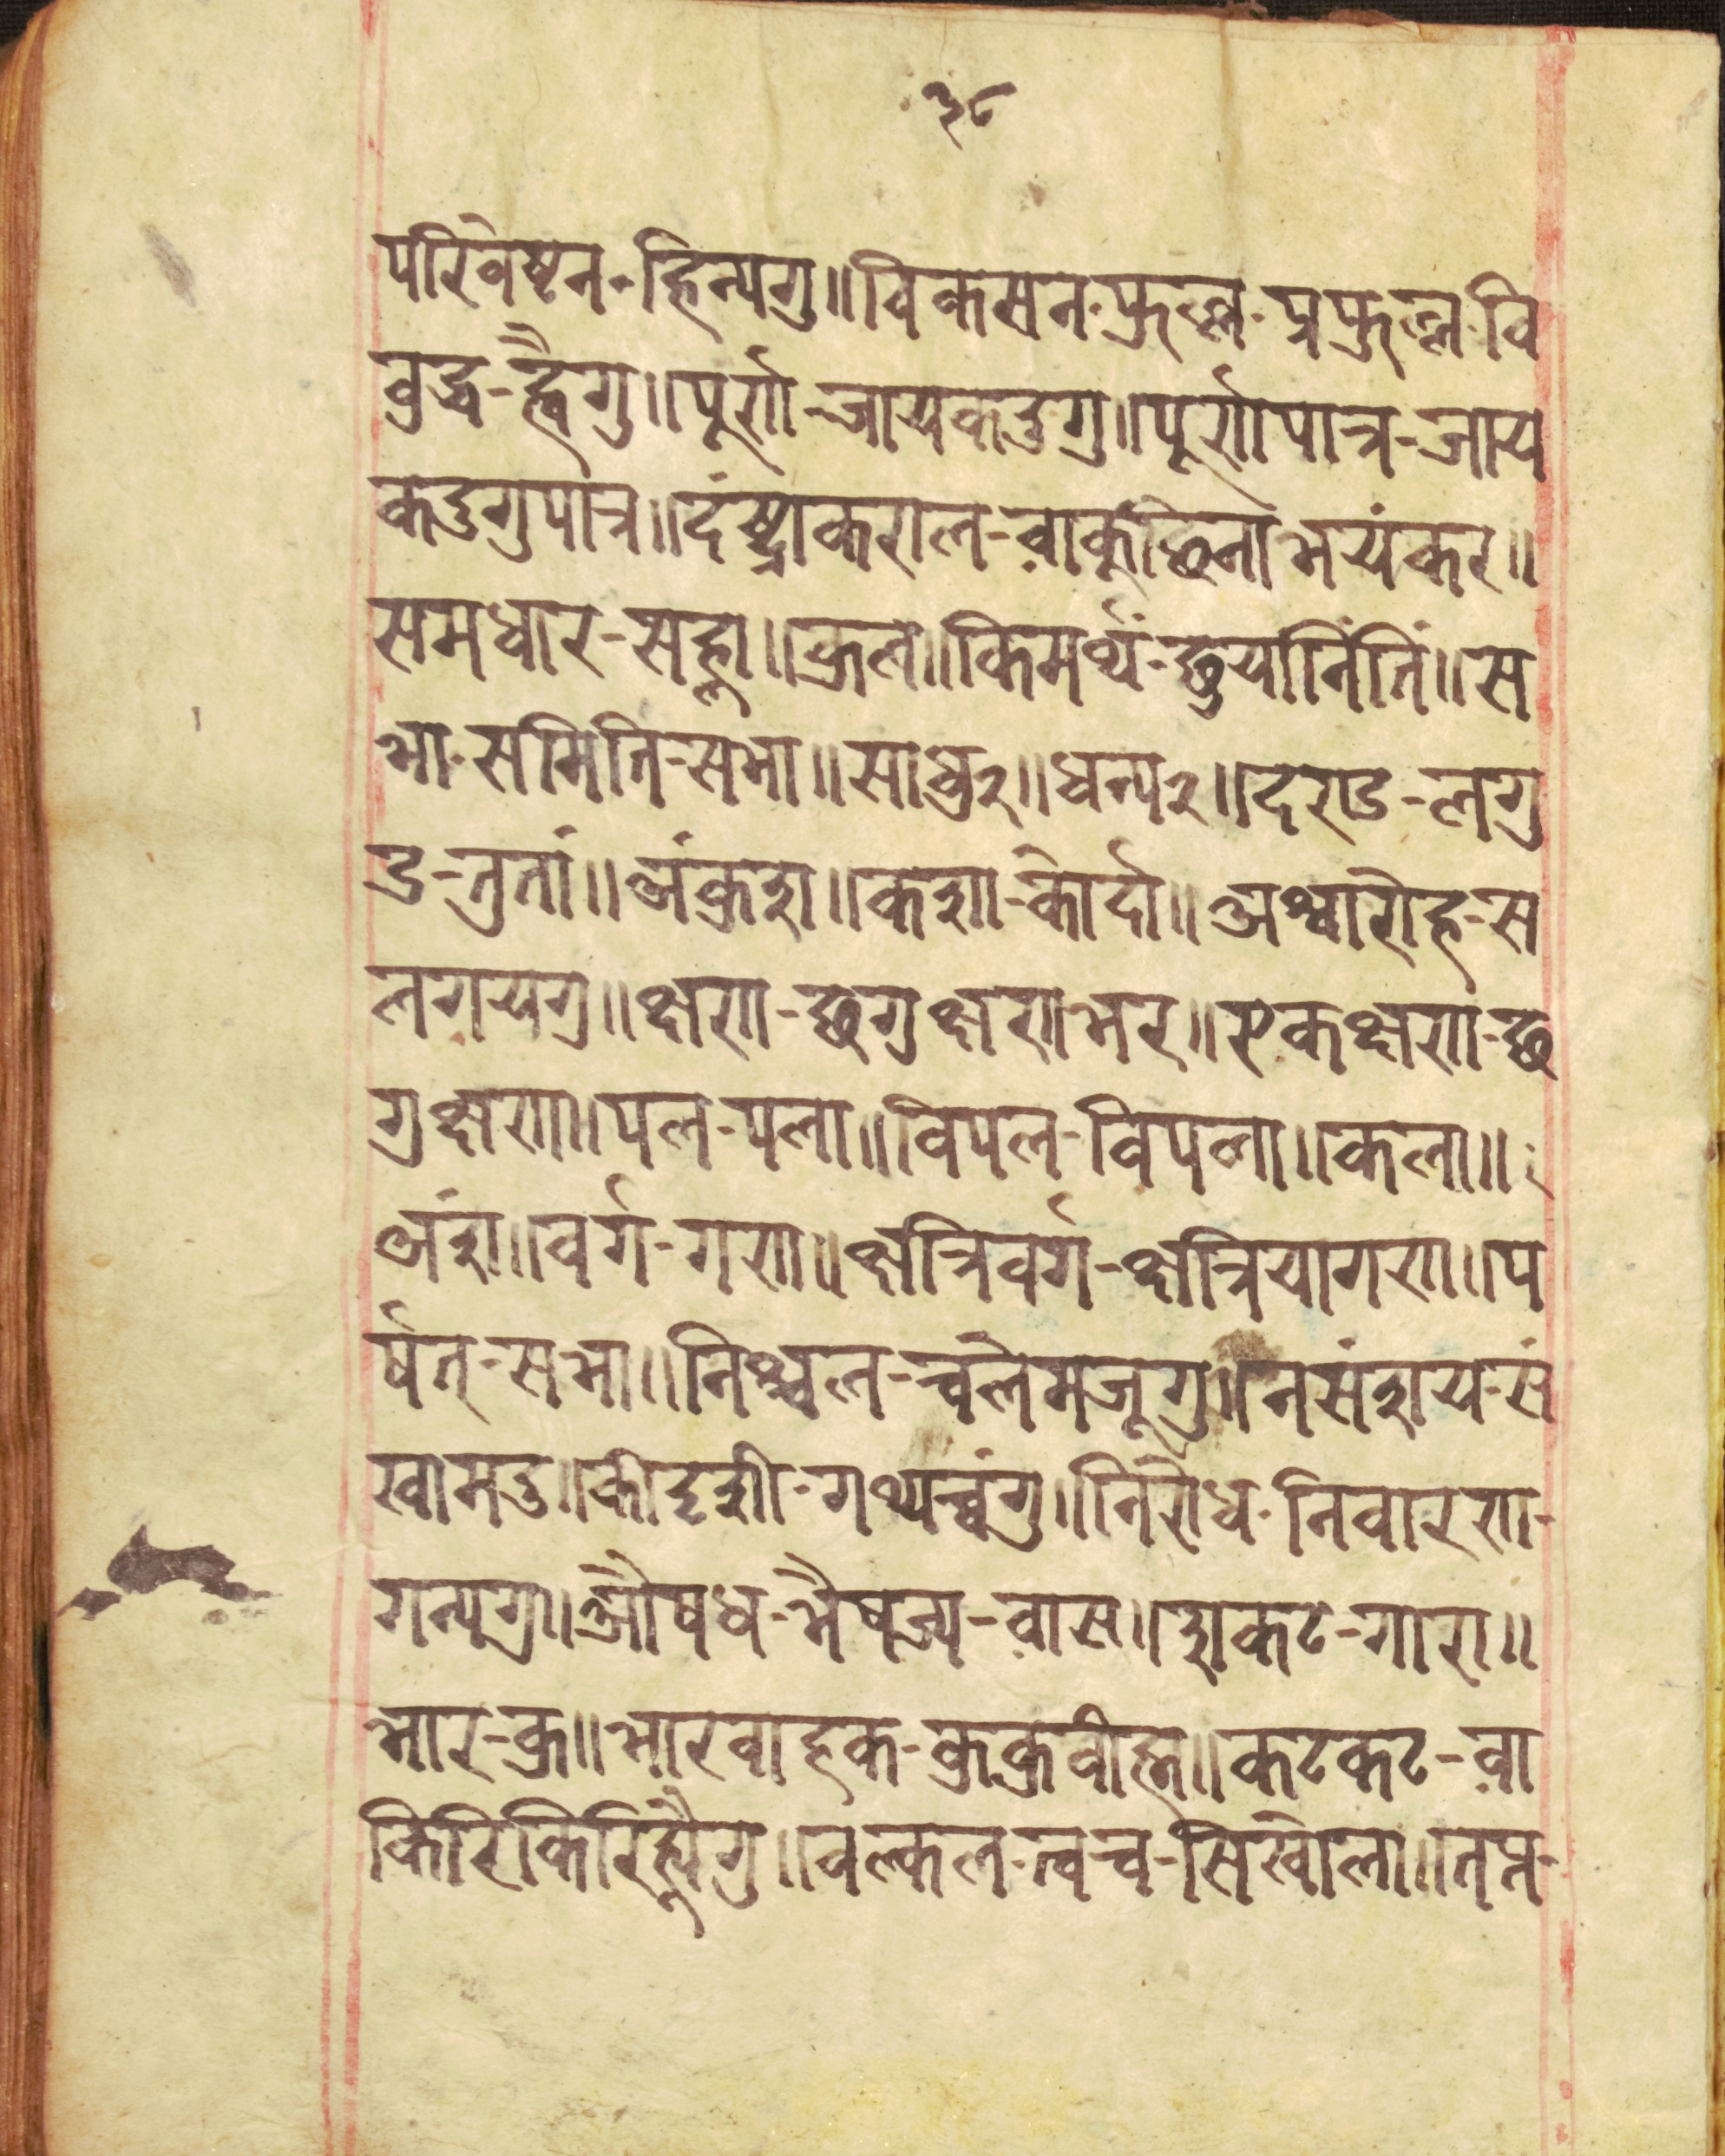 ३८
परिवेष्टन-हिन्यगु॥विकसन-फुल्ल-प्रफुल्ल-वि
बुद्ध-ह्वैगु॥पूर्ण-जायकदुगु॥पूर्णपात्र-जाय
कदुगुपात्र॥दंष्ट्राकराल-वाकुछिना भयंकर॥
समधार-सह्लु॥कुल॥किमर्थं-छुयानिंतिं॥स
भा-समिति-सभा॥साधु२॥धन्य२॥दण्ड-लगु
ड-तुतां॥अंकुश॥कशा-कोर्दा॥अश्वारोह-स
लगयगु॥क्षण-छगुक्षणभर॥एकक्षण-छ
गुक्षण॥पल-पला॥विपल-विपला॥कला॥
अंश॥वर्ग-गण॥क्षत्रिवर्ग-क्षत्रियागण॥प
र्षत्-सभा॥निश्चल-चलेमजूगु॥नसंशय-सं
खामदु॥कीदृशी-गथ्यच्वंगु॥निरोध-निवारण-
गन्यगु॥औषध-भैषज्य-वास॥शकट-गारा॥
भार-कु॥भारवाहक-कुकुबीह्म॥कटकट-वा
किरिकिरिह्यैगु॥वल्कल-त्वच-सिखोला॥तप्त-